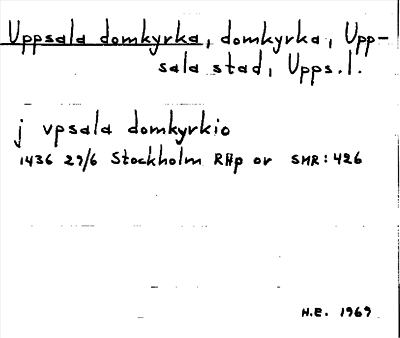 Uppsala domkyrka, domkyrka, Upp-
sala stad, Upps.l.
j vpsala domkyrkio
1436 29/6 Stockholm RHp or SMR:426
H.E. 1969